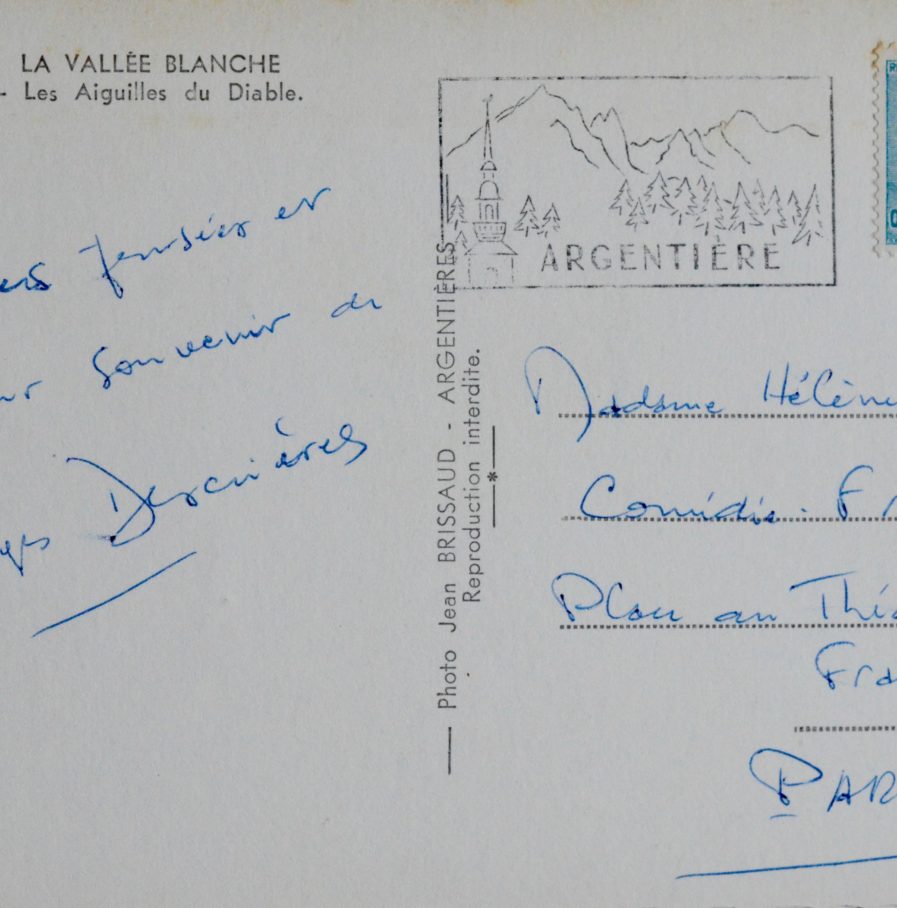 LA VALLÉE BLANCHE
- Les Aiguilles du Diable.
pensées et
souvenir de
Descrières
Photo Jean BRISSAUD - ARGENTIÈRES
Reproduction interdite.
ARGENTIÈRE
Madame Hélène
Comédie. Fr
Place au Théâ
Fra
PAR